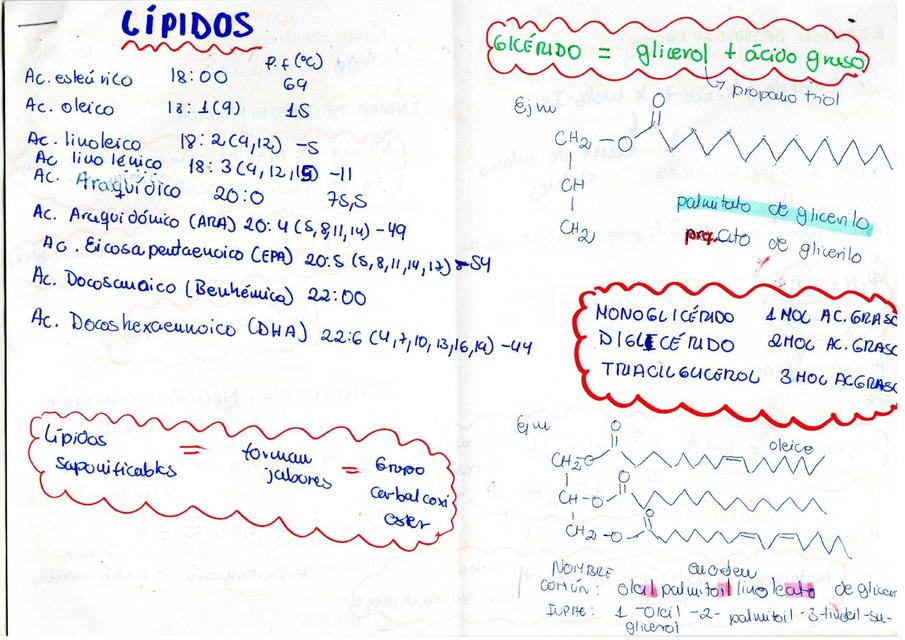 LÍPIDOS
p.f (ºC)
Ac. esteárico 18:00 69
Ac. oleico 18:1(9) 15
Ac. linoleico 18:2(9,12) -5
Ac. linolénico 18:3(9,12,15) -11
Ac. Araquídico 20:0 75,5
Ac. Araquidómico (ARA) 20:4 (5,8,11,14) -49
Ac. Eicosapentaenoico (EPA) 20:5 (5,8,11,14,17) -54
Ac. Docosanoico (Benhémico) 22:00
Ac. Docoshexaennoico (DHA) 22:6 (4,7,10,13,16,19) -44
Lípidos saponificables = forman jabones = Grupo carbalcoxi ester
GLICÉRIDO = glicerol + ácido graso
propano triol
Ejm
O
CH2 -O
CH
CH2
palmitato de glicerilo
ato de glicerilo
MONOGLICÉRIDO 1 MOL AC.GRASO
DIGLICÉRIDO 2MOL AC.GRASO
TRIACILGLICEROL 3 MOL AC GRASO
Ejm
O
oleico
CH2-O
O
CH-O
O
CH2-O
NOMBRE
COMÚN: oleil palmitoil linoleato de glicer
IUPAC: 1-oleil-2-palmitoil-3-linoleil-sn-
glicerol